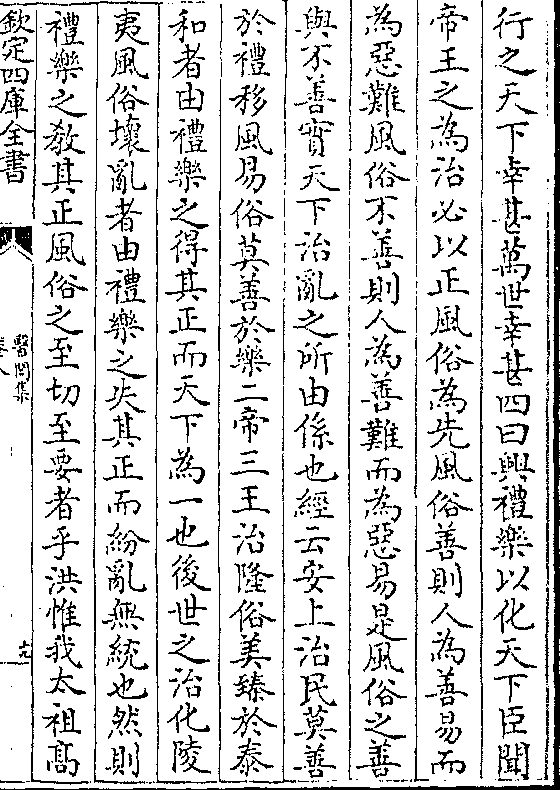 行之天下幸甚萬世幸甚四曰興禮樂以化天下臣聞
帝王之為治必以正風俗為先風俗善則人為善易而
為惡難風俗不善則人為善難而為惡易是風俗之善
與不善實天下治亂之所由係也經云安上治民莫善
於禮移風易俗莫善於樂二帝三王治隆俗美臻於泰
和者由禮樂之得其正而天下為一也後世之治化陵
夷風俗壞亂者由禮樂之失其正而紛亂無統也然則
禮樂之教其正風俗之至切至要者乎洪惟我太祖髙
欽定四庫全書
醫閭集
卷八
十九